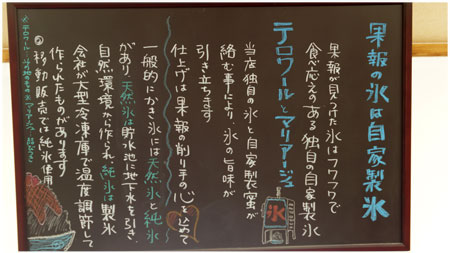 果報の氷は自家製氷
果報が見つけた氷はフワフワで
食べ応えのある独自の自家製氷
テロワールとマリアージュ
当店独自の氷と自家製蜜が
絡む事により、氷の旨味が
引き立ちます
氷
仕上げは果報の削り手の心を込めて
一般的にかき氷には天然氷と純氷
があり、天然氷は貯水池に地下水を引き、
自然環境から作られ、純氷は製氷
会社が大型冷凍庫で温度調節して
作られたものがあります
移動販売では純氷使用